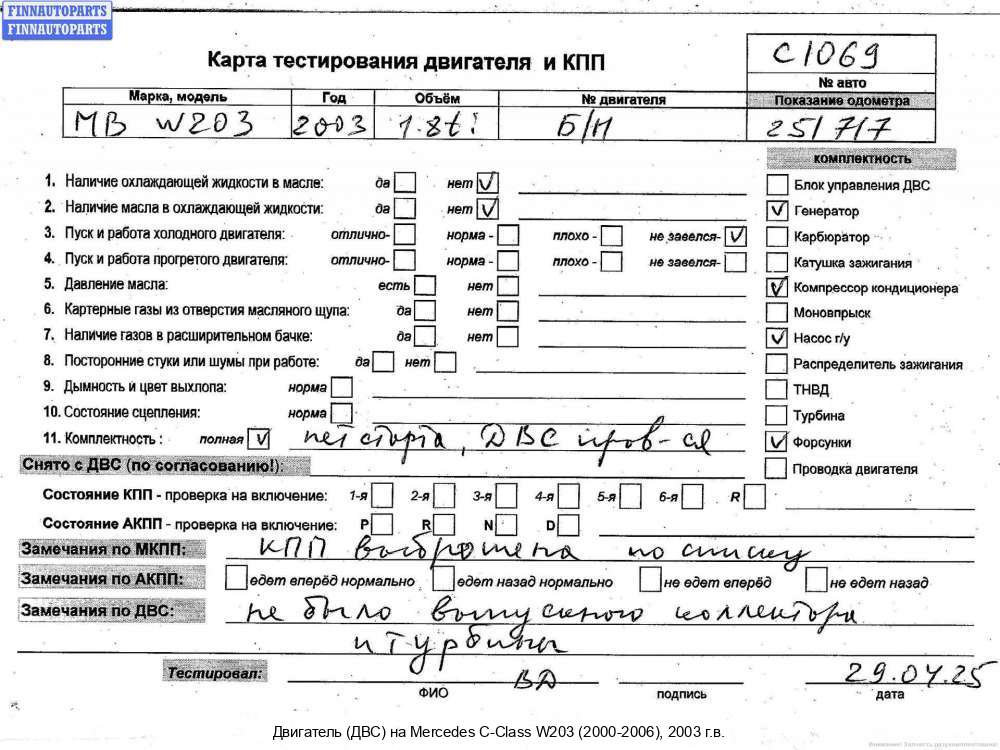 FINNAUTOPARTS
FINNAUTOPARTS
Карта тестирования двигателя и КПП
C1069
№ авто
Марка, модель Год Объём № двигателя Показание одометра
MB W203 2003 1.8ti Б/Н 251717
комплектность
1. Наличие охлаждающей жидкости в масле: да нет V
Блок управления ДВС
2. Наличие масла в охлаждающей жидкости: да нет V
V Генератор
3. Пуск и работа холодного двигателя: отлично- норма - плохо - не завелся- V
Карбюратор
4. Пуск и работа прогретого двигателя: отлично- норма - плохо - не завелся-
Катушка зажигания
5. Давление масла: есть нет
V Компрессор кондиционера
6. Картерные газы из отверстия масляного щупа: да нет
Моновпрыск
7. Наличие газов в расширительном бачке: да нет
V Насос г/у
8. Посторонние стуки или шумы при работе: да нет
Распределитель зажигания
9. Дымность и цвет выхлопа: норма
ТНВД
10. Состояние сцепления: норма
Турбина
11. Комплектность : полная V нет старта, ДВС пров-ся
V Форсунки
Снято с ДВС (по согласованию!):
Проводка двигателя
Состояние КПП - проверка на включение: 1-я 2-я 3-я 4-я 5-я 6-я R
Состояние АКПП - проверка на включение: P R N D
Замечания по МКПП: КПП выброшена по списку
Замечания по АКПП: едет вперёд нормально едет назад нормально не едет вперёд не едет назад
Замечания по ДВС: не было выпускного коллектора
и турбины
Тестировал: ВД 29.04.25
ФИО подпись дата
Двигатель (ДВС) на Mercedes C-Class W203 (2000-2006), 2003 г.в.